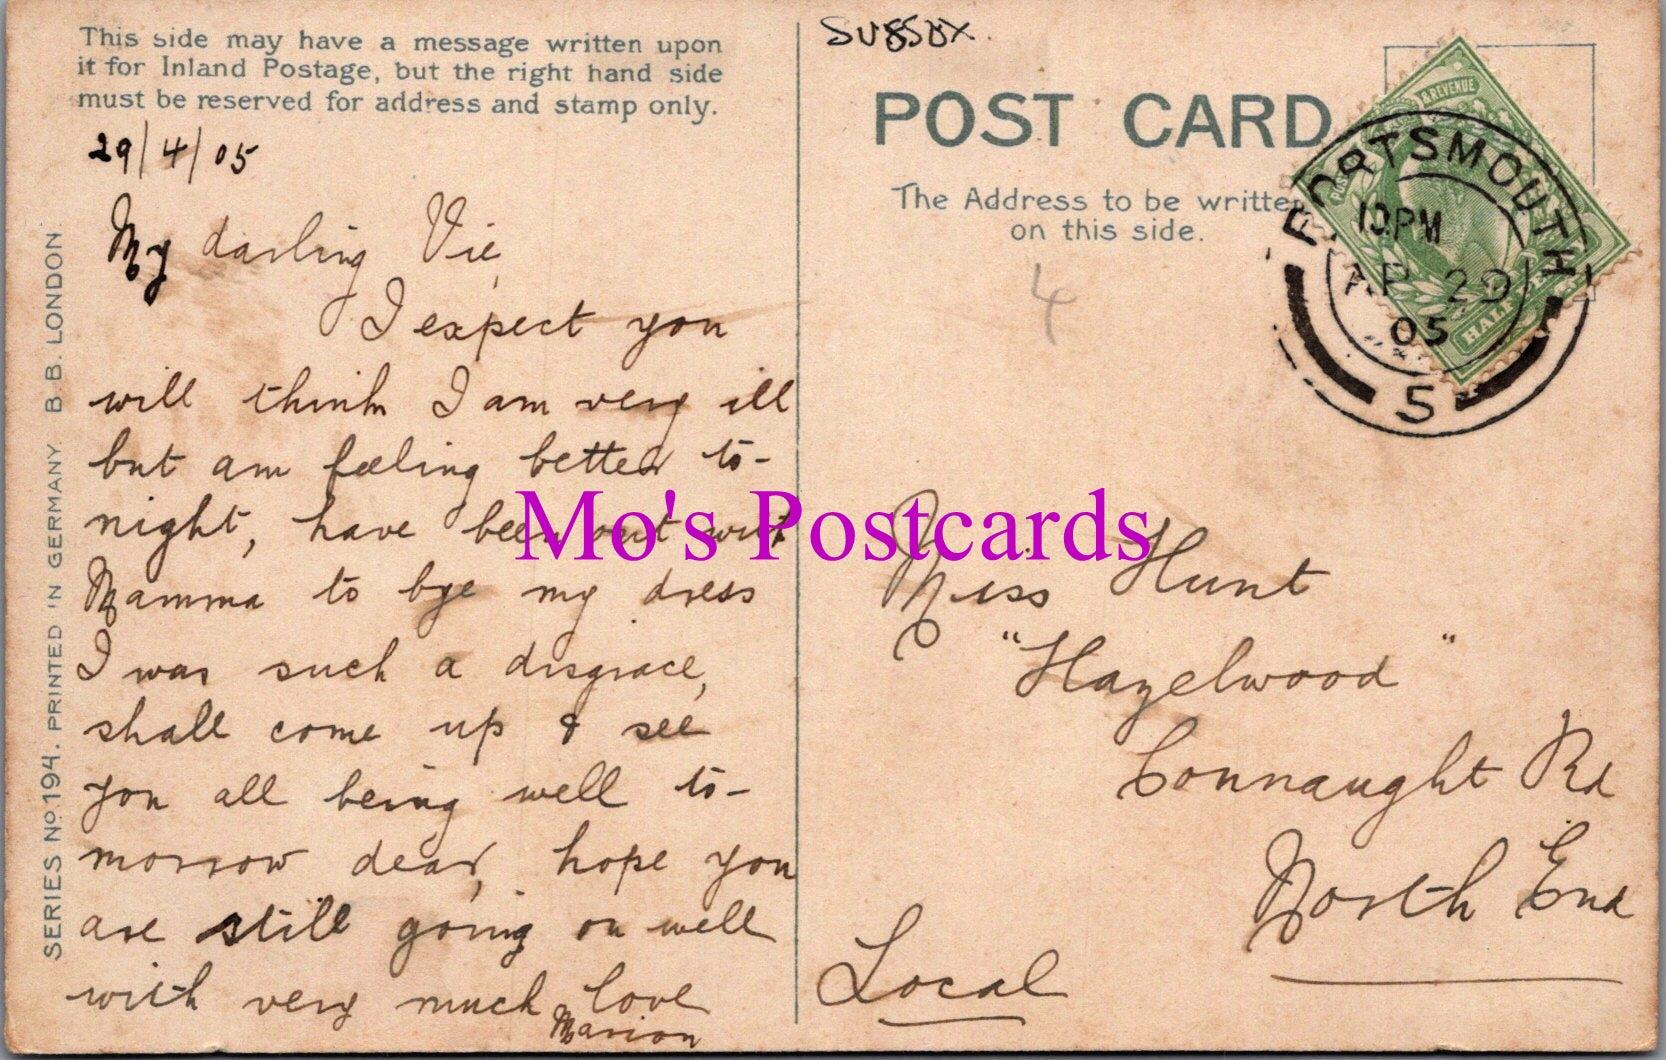 This side may have a message written upon
it for Inland Postage, but the right hand side
must be reserved for address and stamp only.
29/4/05
My darling Vie,
I expect you
will think I am very ill
but am feeling better to-
night, have been out with
Mamma to bye my dress
I was such a disgrace,
shall come up & see
you all being well to-
morrow dear, hope you
are still going on well
with very much love
Marion
SERIES No 194. PRINTED IN GERMANY. B. B. LONDON.
SUSSEX.
POST CARD
The Address to be written
on this side.
4
& REVENUE
HALF
PORTSMOUTH
10.PM
AP 29
05
5
Miss Hunt
"Hazelwood"
Connaught Rd
North End
Local
Mo's Postcards